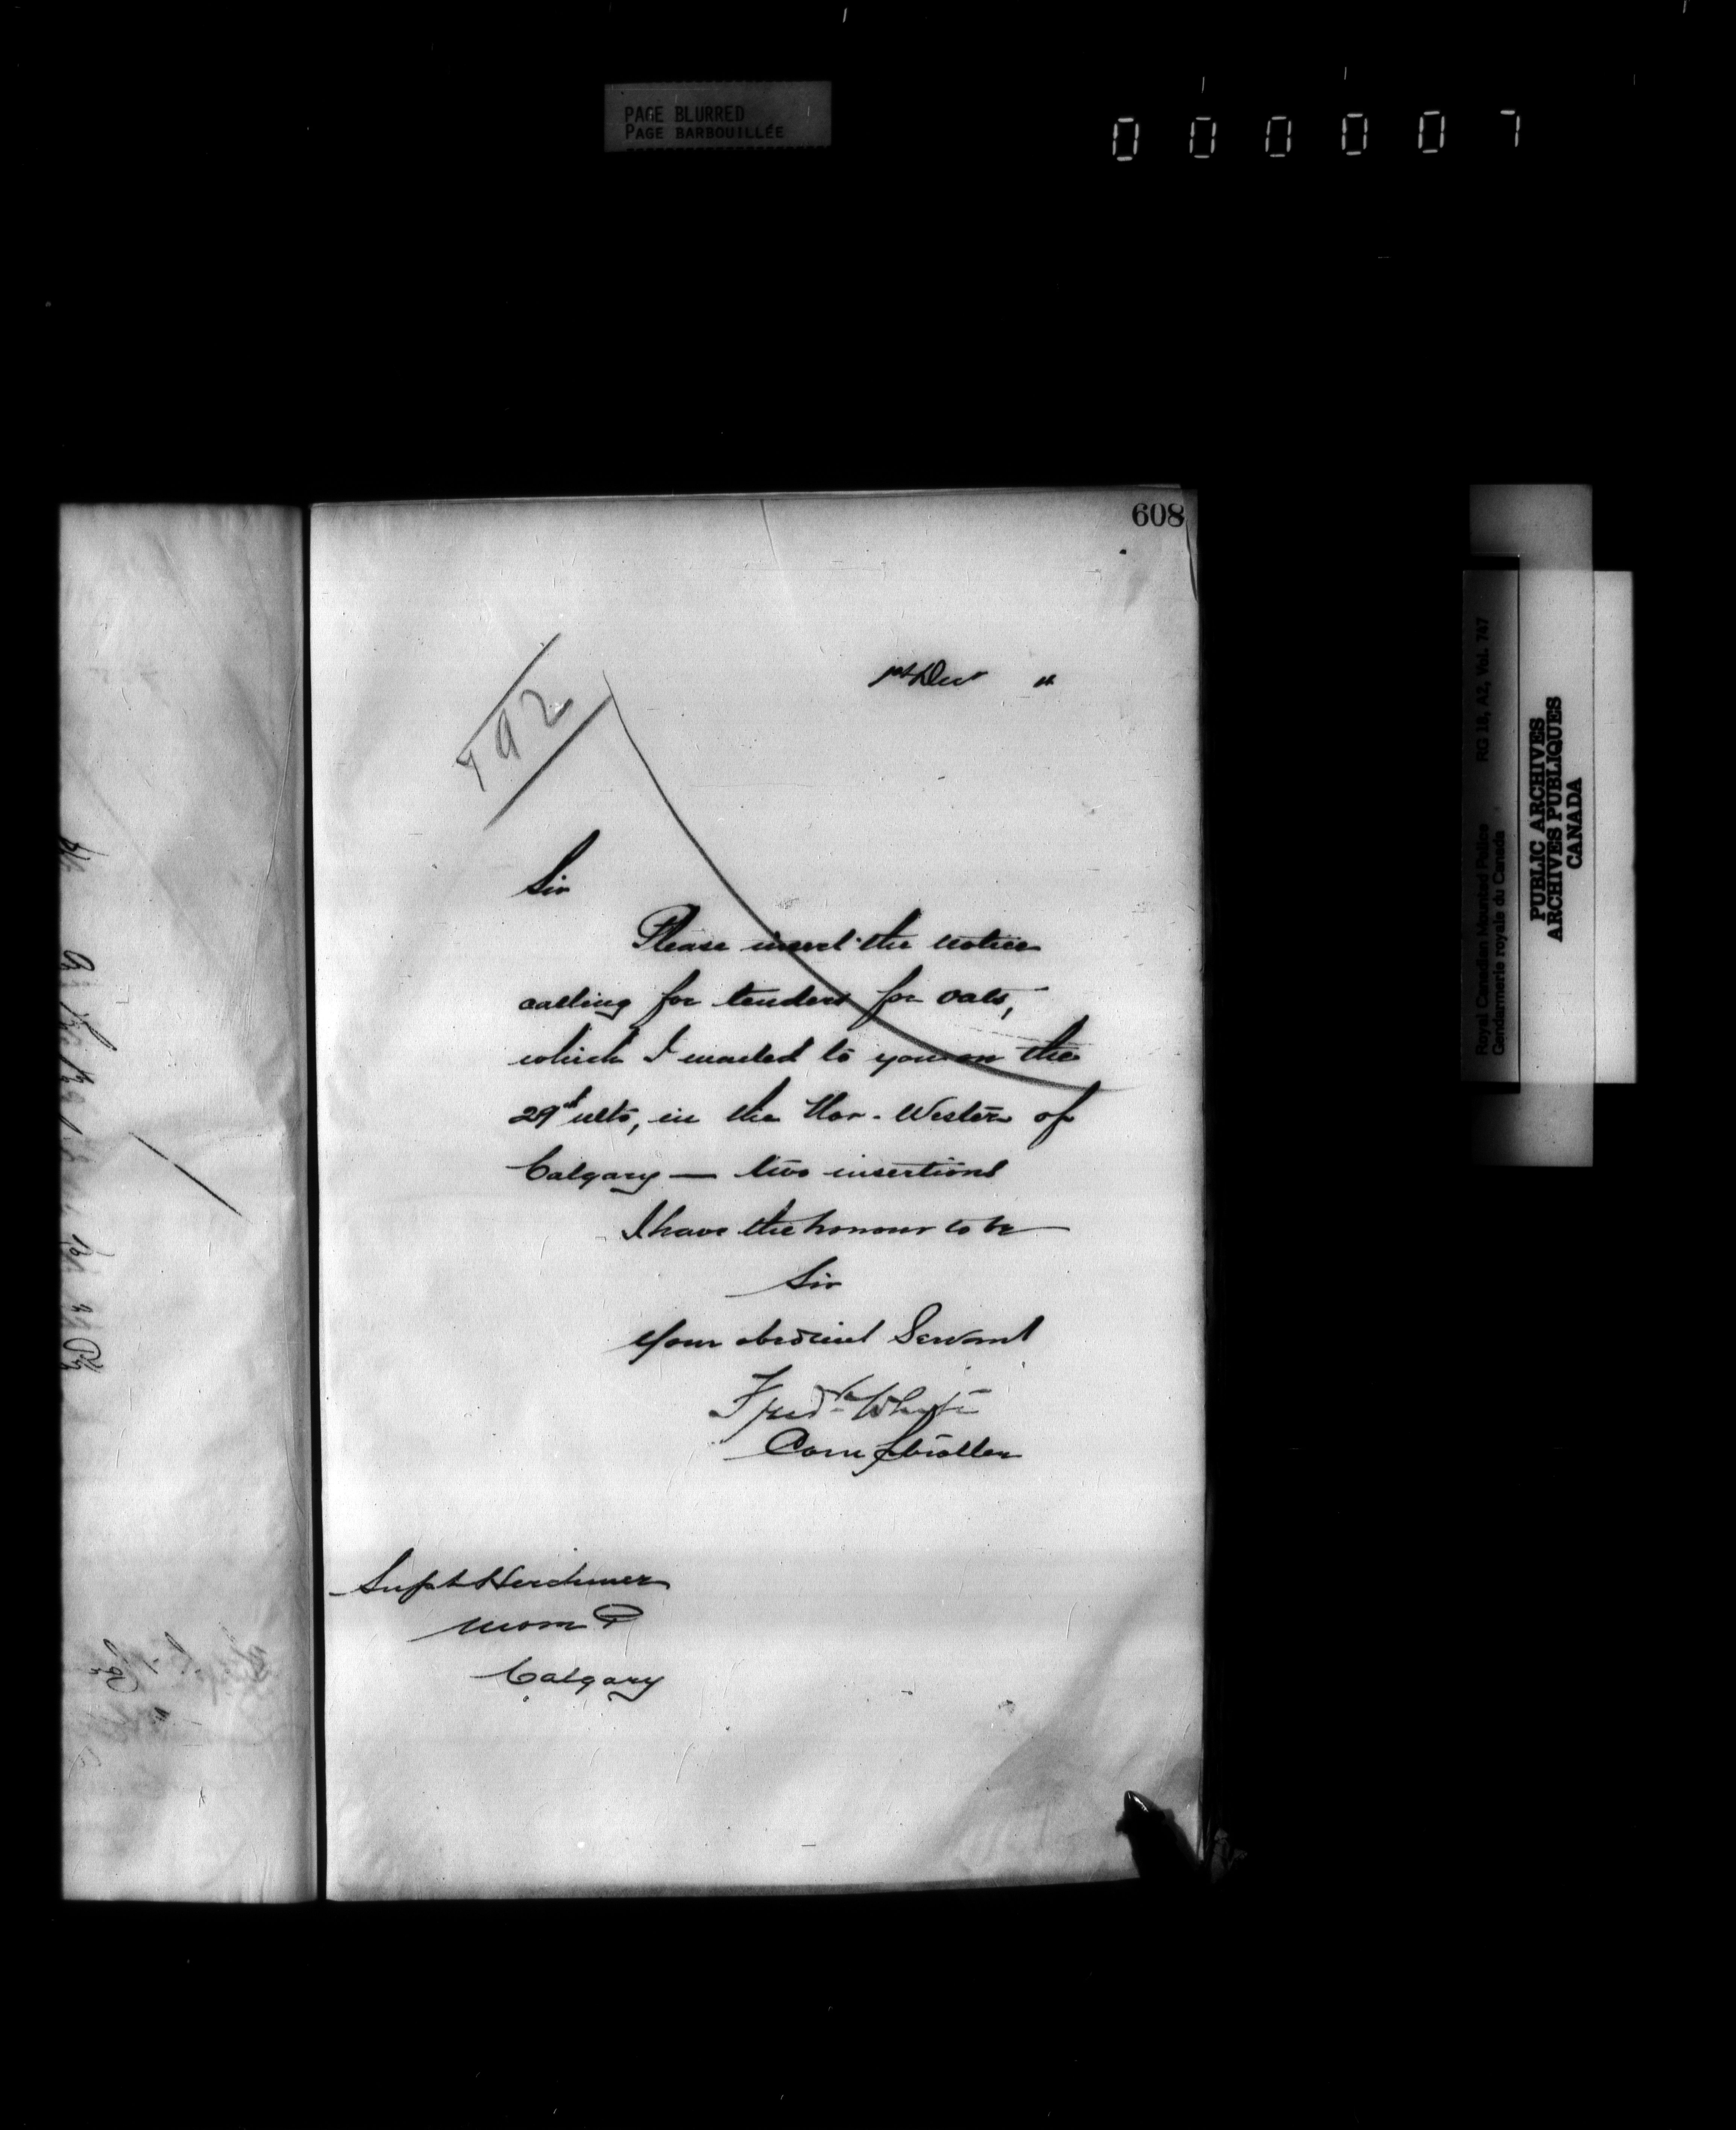 PAGE BLURRED
PAGE BARBOUILLÉE
000007
608
1st Decr "
192
Sir
Please insert the notice
calling for tenders for oats,
which I mailed to you on the
29th ulto, in the Nor-Western of
Calgary — two insertions
I have the honour to be
Sir
Your obedient Servant
Fred White
Comptroller
Supt Herchmer
NWMP
Calgary
Royal Canadian Mounted Police RG 18, A2, Vol. 747
Gendarmerie royale du Canada
PUBLIC ARCHIVES
ARCHIVES PUBLIQUES
CANADA